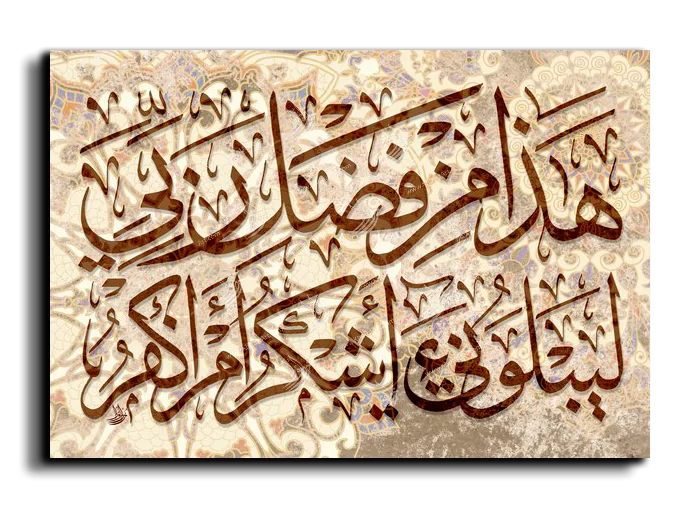 هَذَا مِن فَضْلِ رَبِّي
لِيَبْلُوَنِي أَأَشْكُرُ أَمْ أَكْفُرُ